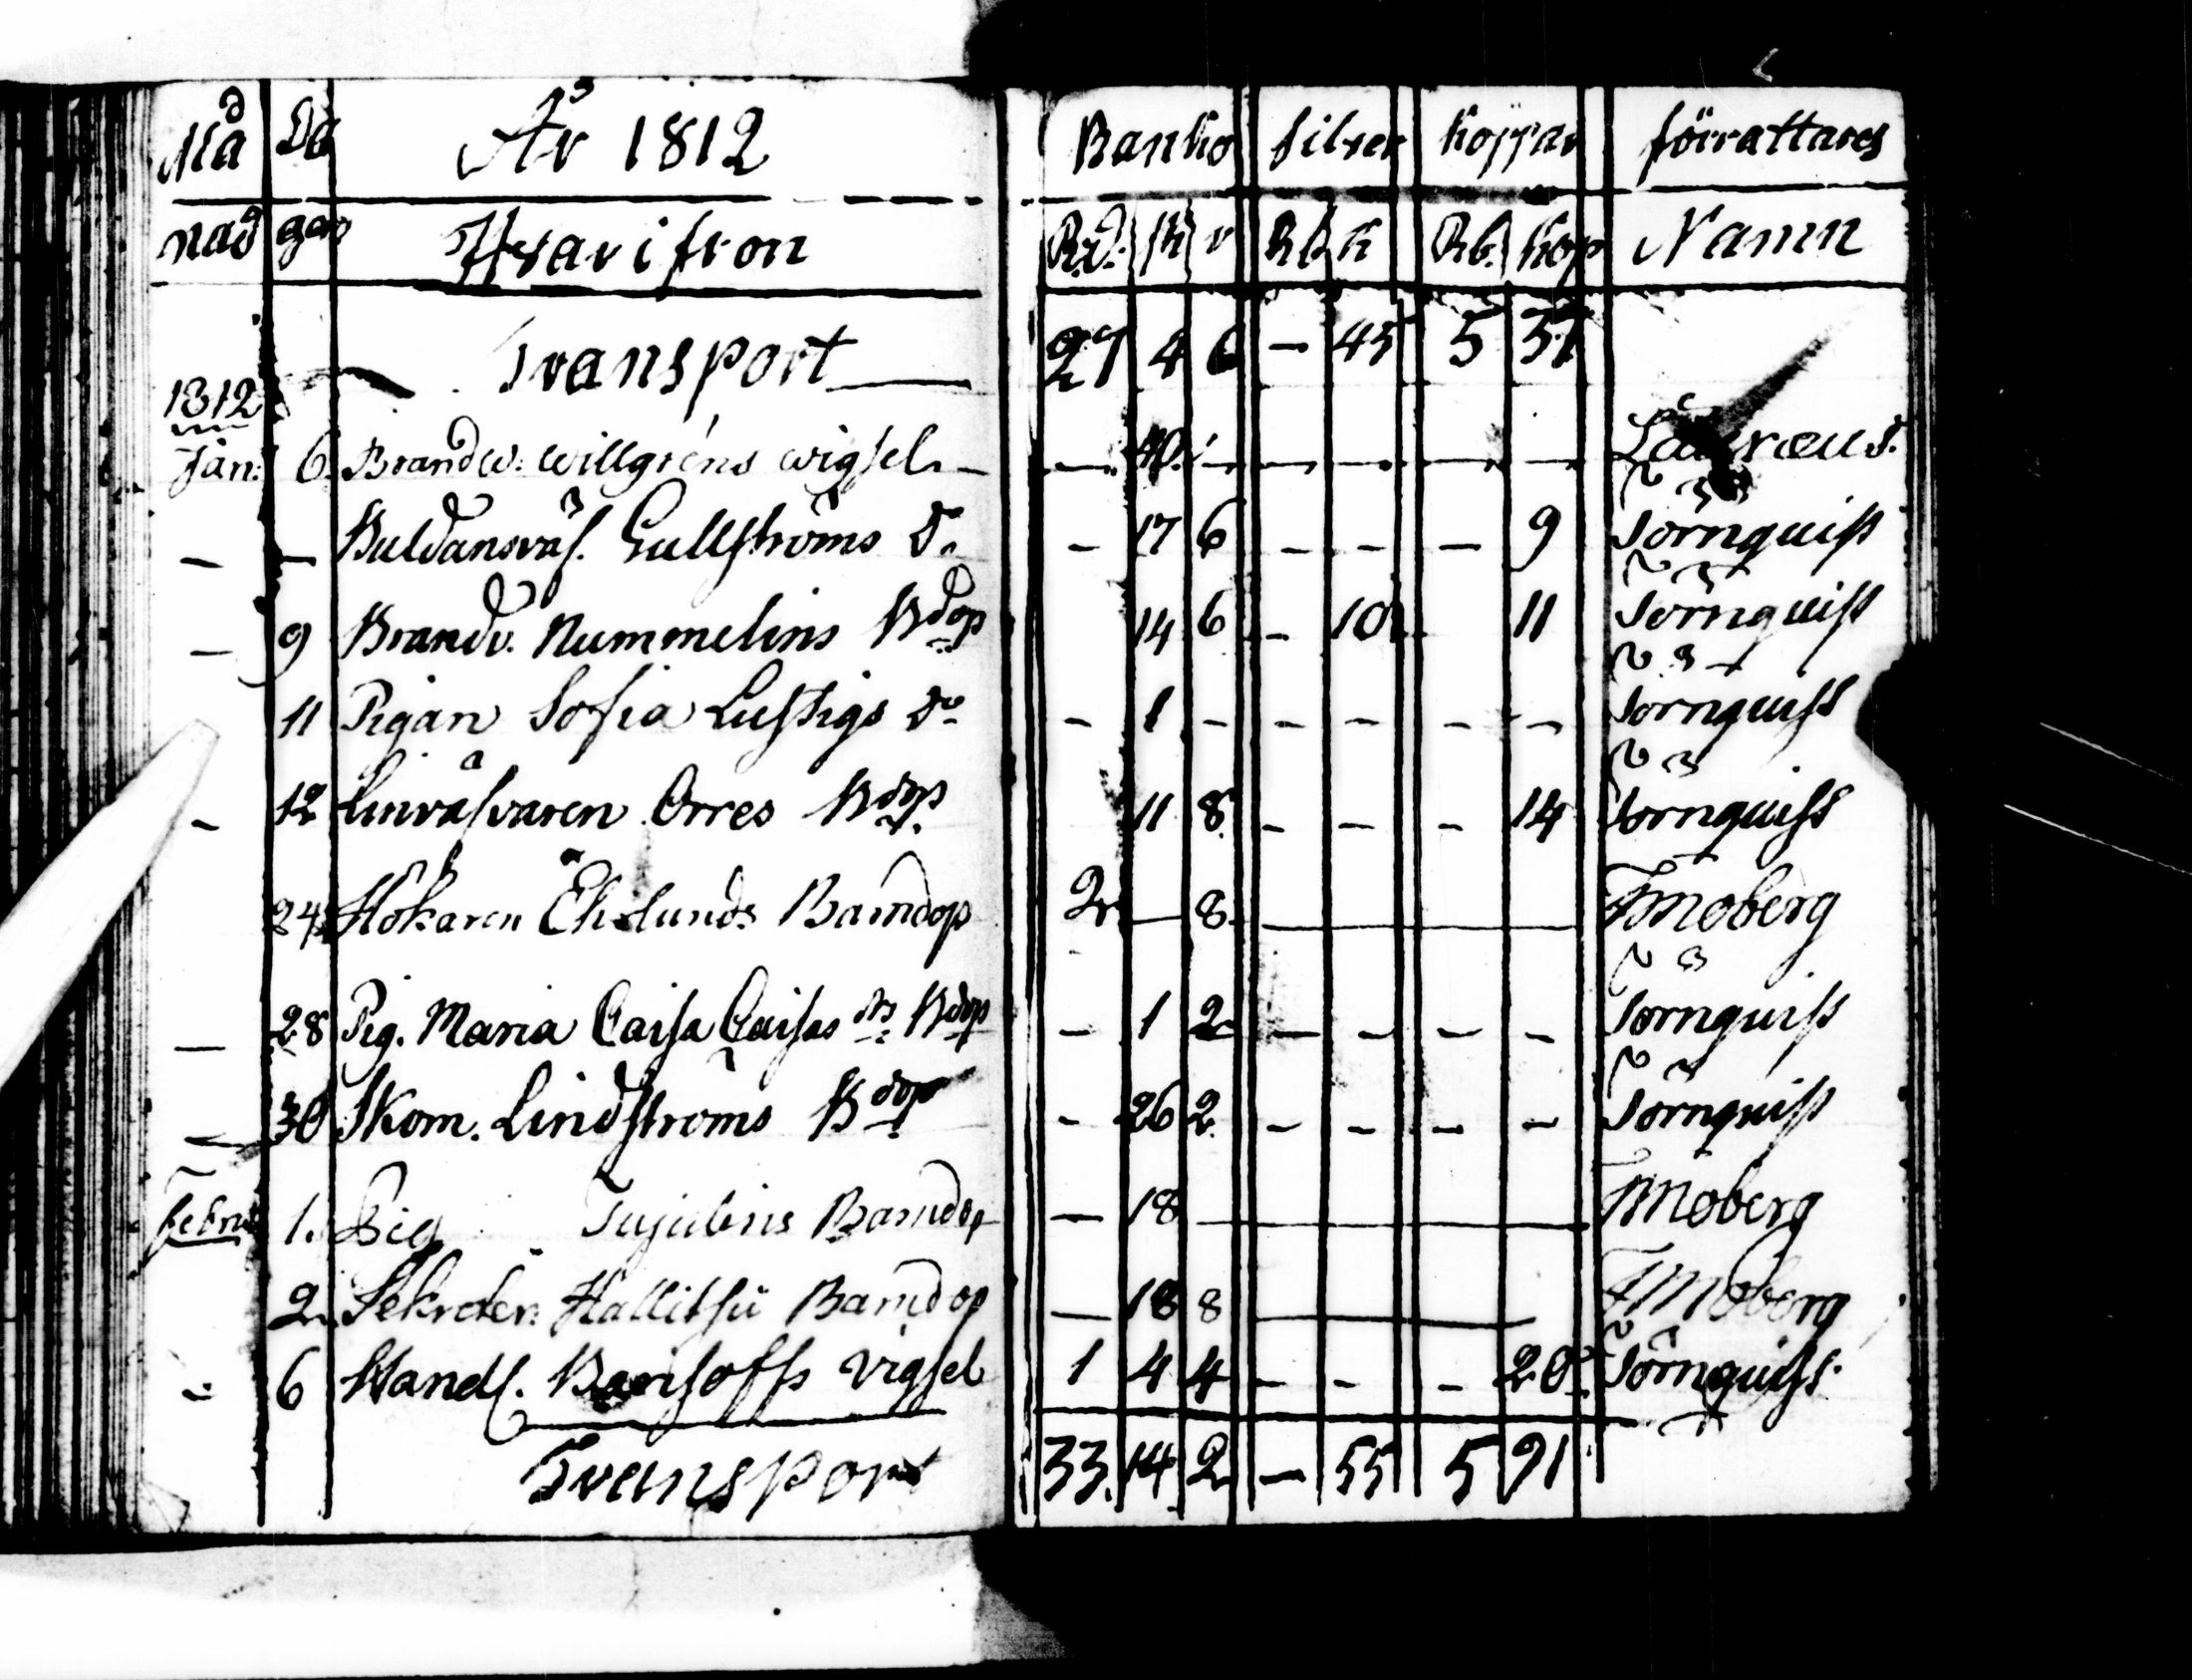 Må Da År 1812 Banko silver koppar förrättares
nad gar Hvarifron Rd. sk r Rb k Rb. kop Namn
Transport 27 4 6 — 45 5 37
1812
Jan: 6. Brandw. Willgréns wigsel — — 40. — — — — —
— — Gullströms do — 17 6 — — — 9 Törnquist
— 9 Brandv. Nummelins Bdop 14 6 — 10 11 Törnquist
11 Pigan Sofia Lustigs do — 1 — — — — — Törnquist
— 12 Linväfvaren Orres Bdop. 11 8. — — — 14 Törnquist
24 Hökaren Ekelunds Barndop 2 — 8. Moberg
— 28 Pig. Maria Caisa Caisas Bdop — 1 2 — — — — Törnquist
— 30 Skom. Lindströms Bdop — 26 2. — — — — Törnquist
Febru 1. Pig Barndop — 18 Moberg
2. Sekreter. Barndop — 18 8 Moberg
— 6 Handl. Borisoffs vigsel 1 4 4 — — — 20. Törnquist
Transport 33. 14. 2 — 55 5 91